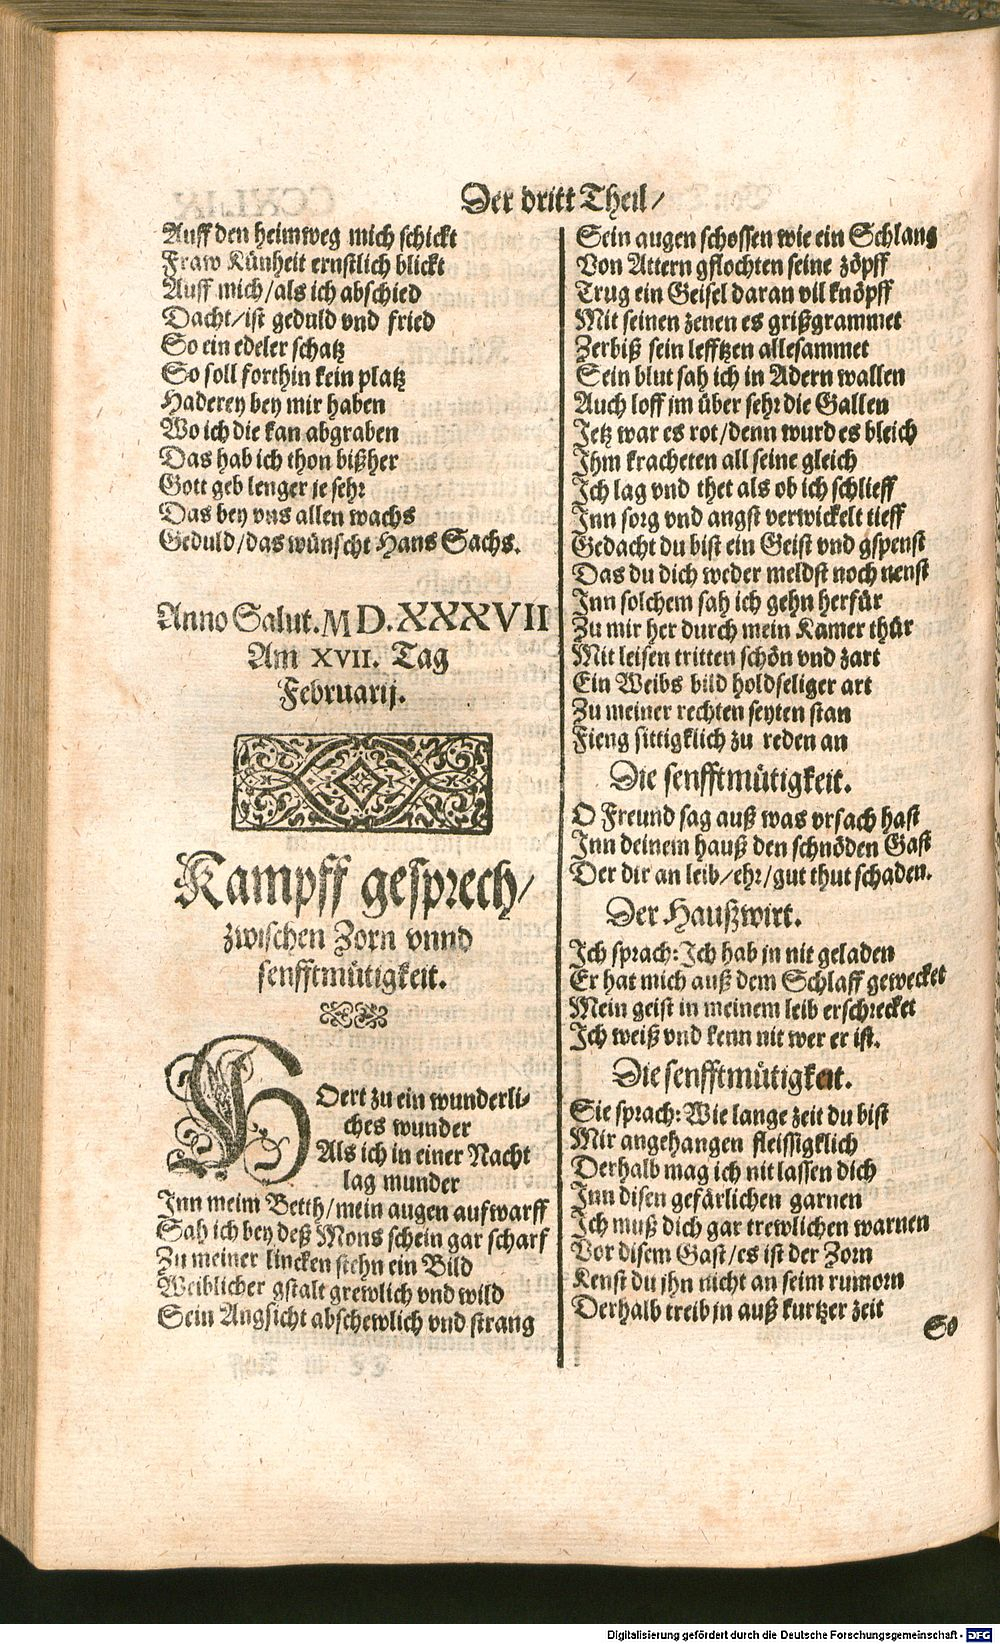 Der dritt Theil/
Auff den heimweg mich schickt
Fraw Künheit ernstlich blickt
Auff mich/als ich abschied
Dacht/ist geduld vnd fried
So ein edeler schatz
So soll forthin kein platz
Haderey bey mir haben
Wo ich die kan abgraben
Das hab ich thon bißher
Gott geb lenger je sehr
Das bey vns allen wachs
Geduld/das wünscht Hans Sachs.
Anno Salut. MD.XXXVII
Am XVII. Tag
Februarij.
Kampff gesprech/
zwischen Zorn vnnd
senfftmütigkeit.
HOert zu ein wunderli-
ches wunder
Als ich in einer Nacht
lag munder
Inn meim Betth/mein augen aufwarff
Sah ich bey deß Mons schein gar scharf
Zu meiner lincken stehn ein Bild
Weiblicher gstalt grewlich vnd wild
Sein Angsicht abschewlich vnd strang
Sein augen schossen wie ein Schlang
Von Attern gflochten seine zöpff
Trug ein Geisel daran vil knöpff
Mit seinen zenen es grißgrammet
Zerbiß sein lefftzen allesammet
Sein blut sah ich in Adern wallen
Auch loff jm über sehr die Gallen
Jetz war es rot/denn wurd es bleich
Ihm kracheten all seine gleich
Ich lag vnd thet als ob ich schlieff
Inn sorg vnd angst verwickelt tieff
Gedacht du bist ein Geist vnd gspenst
Das du dich weder meldst noch nenst
Inn solchem sah ich gehn herfür
Zu mir her durch mein Kamer thür
Mit leisen tritten schön vnd zart
Ein Weibs bild holdseliger art
Zu meiner rechten seyten stan
Fieng sittigklich zu reden an
Die senfftmütigkeit.
O Freund sag auß was vrsach hast
Inn deinem hauß den schnöden Gast
Der dir an leib/ehr/gut thut schaden.
Der Haußwirt.
Ich sprach: Ich hab jn nit geladen
Er hat mich auß dem Schlaff gewecket
Mein geist in meinem leib erschrecket
Ich weiß vnd kenn nit wer er ist.
Die senfftmütigkeit.
Sie sprach: Wie lange zeit du bist
Mir angehangen fleissigklich
Derhalb mag ich nit lassen dich
Inn disen gefärlichen garnen
Ich muß dich gar trewlichen warnen
Vor disem Gast/es ist der Zorn
Kenst du jhn nicht an seim rumorn
Derhalb treib jn auß kurtzer zeit
So
Digitalisierung gefördert durch die Deutsche Forschungsgemeinschaft - DFG